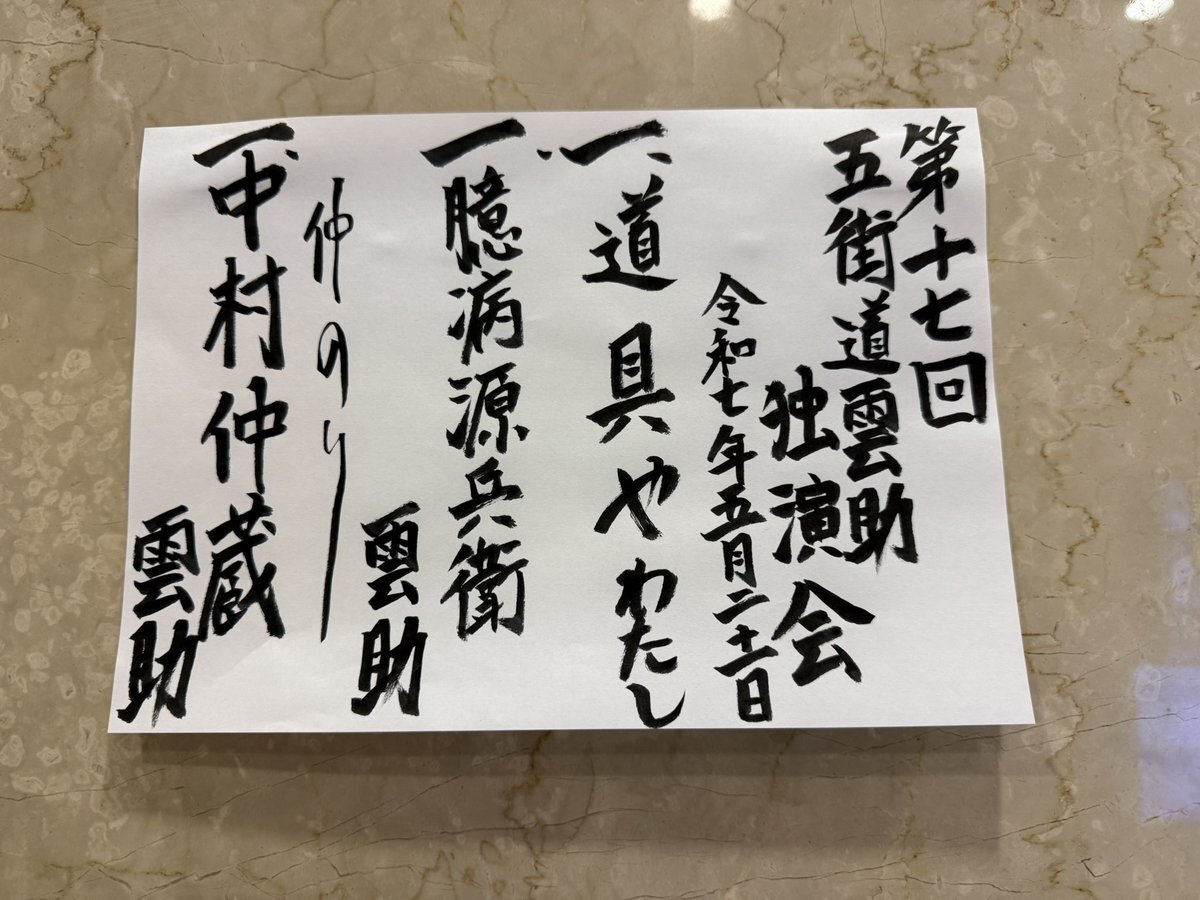 第十七回
五街道雲助
独演会
令和七年五月二十一日
一、道具や わたし
一、臆病源兵衛
雲助
仲のり
一、中村仲蔵
雲助